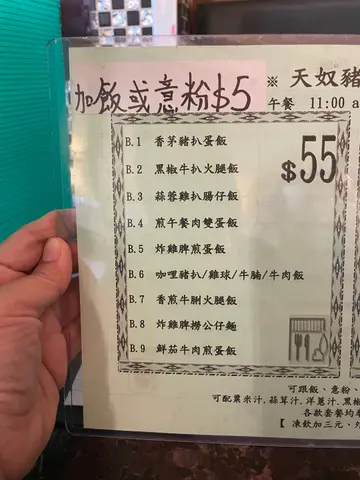 加飯或意粉$5
※ 天奴豬
午餐 11:00 a
$55
B.1 香茅豬扒蛋飯
B.2 黑椒牛扒火腿飯
B.3 蒜蓉雞扒腸仔飯
B.4 煎午餐肉雙蛋飯
B.5 炸雞脾煎蛋飯
B.6 咖哩豬扒/雞球/牛腩/牛肉飯
B.7 香煎牛脷火腿飯
B.8 炸雞脾撈公仔麵
B.9 鮮茄牛肉煎蛋飯
可跟飯、意粉、
可配粟米汁,蒜茸汁,洋蔥汁,黑椒
各款套餐均
【 凍飲加三元、外